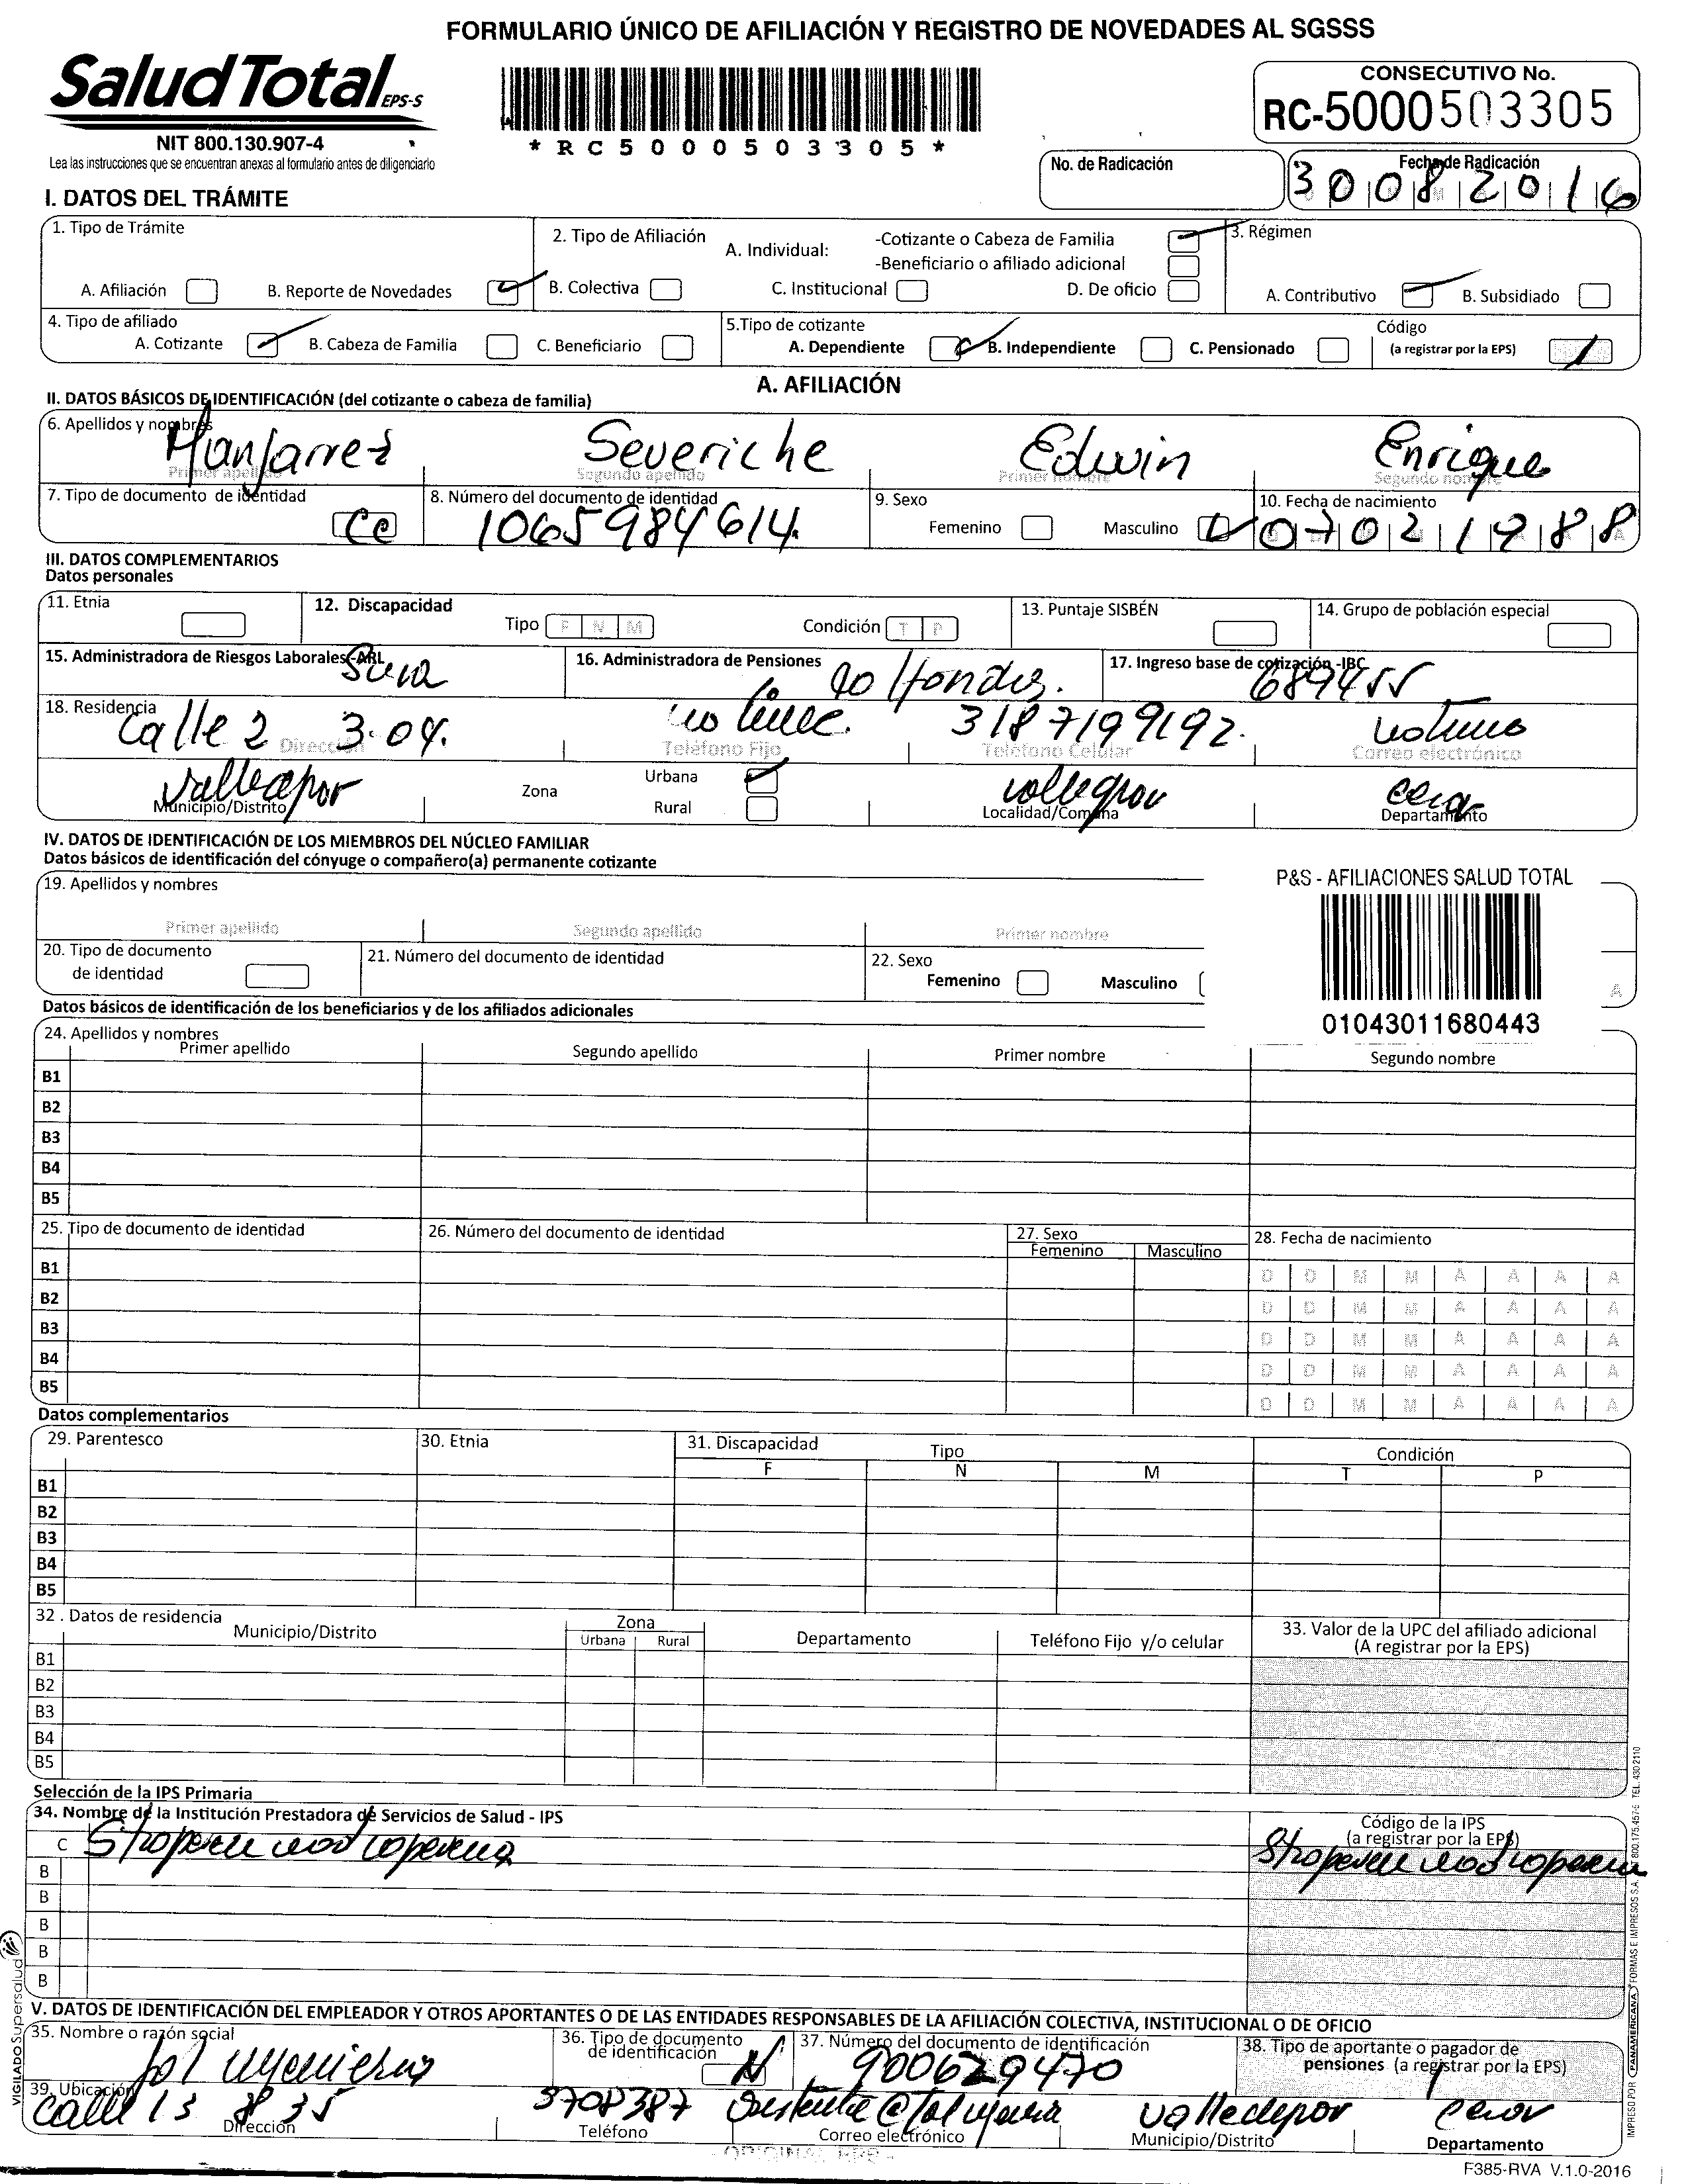 FORMULARIO ÚNICO DE AFILIACIÓN Y REGISTRO DE NOVEDADES AL SGSSS
SaludTotal EPS-S
NIT 800.130.907-4
Lea las instrucciones que se encuentran anexas al formulario antes de diligenciarlo
* R C 5 0 0 0 5 0 3 3 0 5 *
CONSECUTIVO No.
RC-5000503305
No. de Radicación
Fecha de Radicación
30082016
I. DATOS DEL TRÁMITE
1. Tipo de Trámite
A. Afiliación B. Reporte de Novedades
2. Tipo de Afiliación A. Individual: -Cotizante o Cabeza de Familia
-Beneficiario o afiliado adicional
B. Colectiva C. Institucional D. De oficio
3. Régimen
A. Contributivo B. Subsidiado
4. Tipo de afiliado
A. Cotizante B. Cabeza de Familia C. Beneficiario
5.Tipo de cotizante
A. Dependiente B. Independiente C. Pensionado
Código
(a registrar por la EPS) 1
A. AFILIACIÓN
II. DATOS BÁSICOS DE IDENTIFICACIÓN (del cotizante o cabeza de familia)
6. Apellidos y nombres
Manjarrez Severiche Edwin Enrique
Primer apellido Segundo apellido Primer nombre Segundo nombre
7. Tipo de documento de identidad
CC
8. Número del documento de identidad
1065984614.
9. Sexo
Femenino Masculino
10. Fecha de nacimiento
07021988
III. DATOS COMPLEMENTARIOS
Datos personales
11. Etnia
12. Discapacidad Tipo F N M Condición T P
13. Puntaje SISBÉN
14. Grupo de población especial
15. Administradora de Riesgos Laborales-ARL
Sura
16. Administradora de Pensiones
Colfondos.
17. Ingreso base de cotización -IBC
689455
18. Residencia
Calle 2 3-04. no tiene. 3187199192. no tiene
Dirección Teléfono Fijo Teléfono Celular Correo electrónico
Valledupar Zona Urbana
Rural
Municipio/Distrito Localidad/Comuna Departamento
Cesar
IV. DATOS DE IDENTIFICACIÓN DE LOS MIEMBROS DEL NÚCLEO FAMILIAR
Datos básicos de identificación del cónyuge o compañero(a) permanente cotizante
19. Apellidos y nombres
Primer apellido Segundo apellido Primer nombre
P&S - AFILIACIONES SALUD TOTAL
01043011680443
20. Tipo de documento
de identidad
21. Número del documento de identidad
22. Sexo
Femenino Masculino
A
Datos básicos de identificación de los beneficiarios y de los afiliados adicionales
24. Apellidos y nombres
Primer apellido Segundo apellido Primer nombre Segundo nombre
B1
B2
B3
B4
B5
25. Tipo de documento de identidad 26. Número del documento de identidad 27. Sexo 28. Fecha de nacimiento
Femenino Masculino
B1 D D M M A A A A
B2 D D M M A A A A
B3 D D M M A A A A
B4 D D M M A A A A
B5 D D M M A A A A
Datos complementarios
29. Parentesco 30. Etnia 31. Discapacidad Tipo Condición
F N M T P
B1
B2
B3
B4
B5
32 . Datos de residencia
Municipio/Distrito Zona Departamento Teléfono Fijo y/o celular
Urbana Rural
33. Valor de la UPC del afiliado adicional
(A registrar por la EPS)
B1
B2
B3
B4
B5
Selección de la IPS Primaria
34. Nombre de la Institución Prestadora de Servicios de Salud - IPS
Código de la IPS
(a registrar por la EPS)
C
B
B
B
B
B
V. DATOS DE IDENTIFICACIÓN DEL EMPLEADOR Y OTROS APORTANTES O DE LAS ENTIDADES RESPONSABLES DE LA AFILIACIÓN COLECTIVA, INSTITUCIONAL O DE OFICIO
35. Nombre o razón social
36. Tipo de documento
de identificación
N
37. Número del documento de identificación
900629470
38. Tipo de aportante o pagador de
pensiones (a registrar por la EPS)
1
39. Ubicación
Calle 13 8 35 5708387 Valledupar Cesar
Dirección Teléfono Correo electrónico Municipio/Distrito Departamento
F385-RVA V.1.0-2016
VIGILADO Supersalud
IMPRESO POR PANAMERICANA FORMAS E IMPRESOS S.A. 800.175.457-5 TEL. 4302110